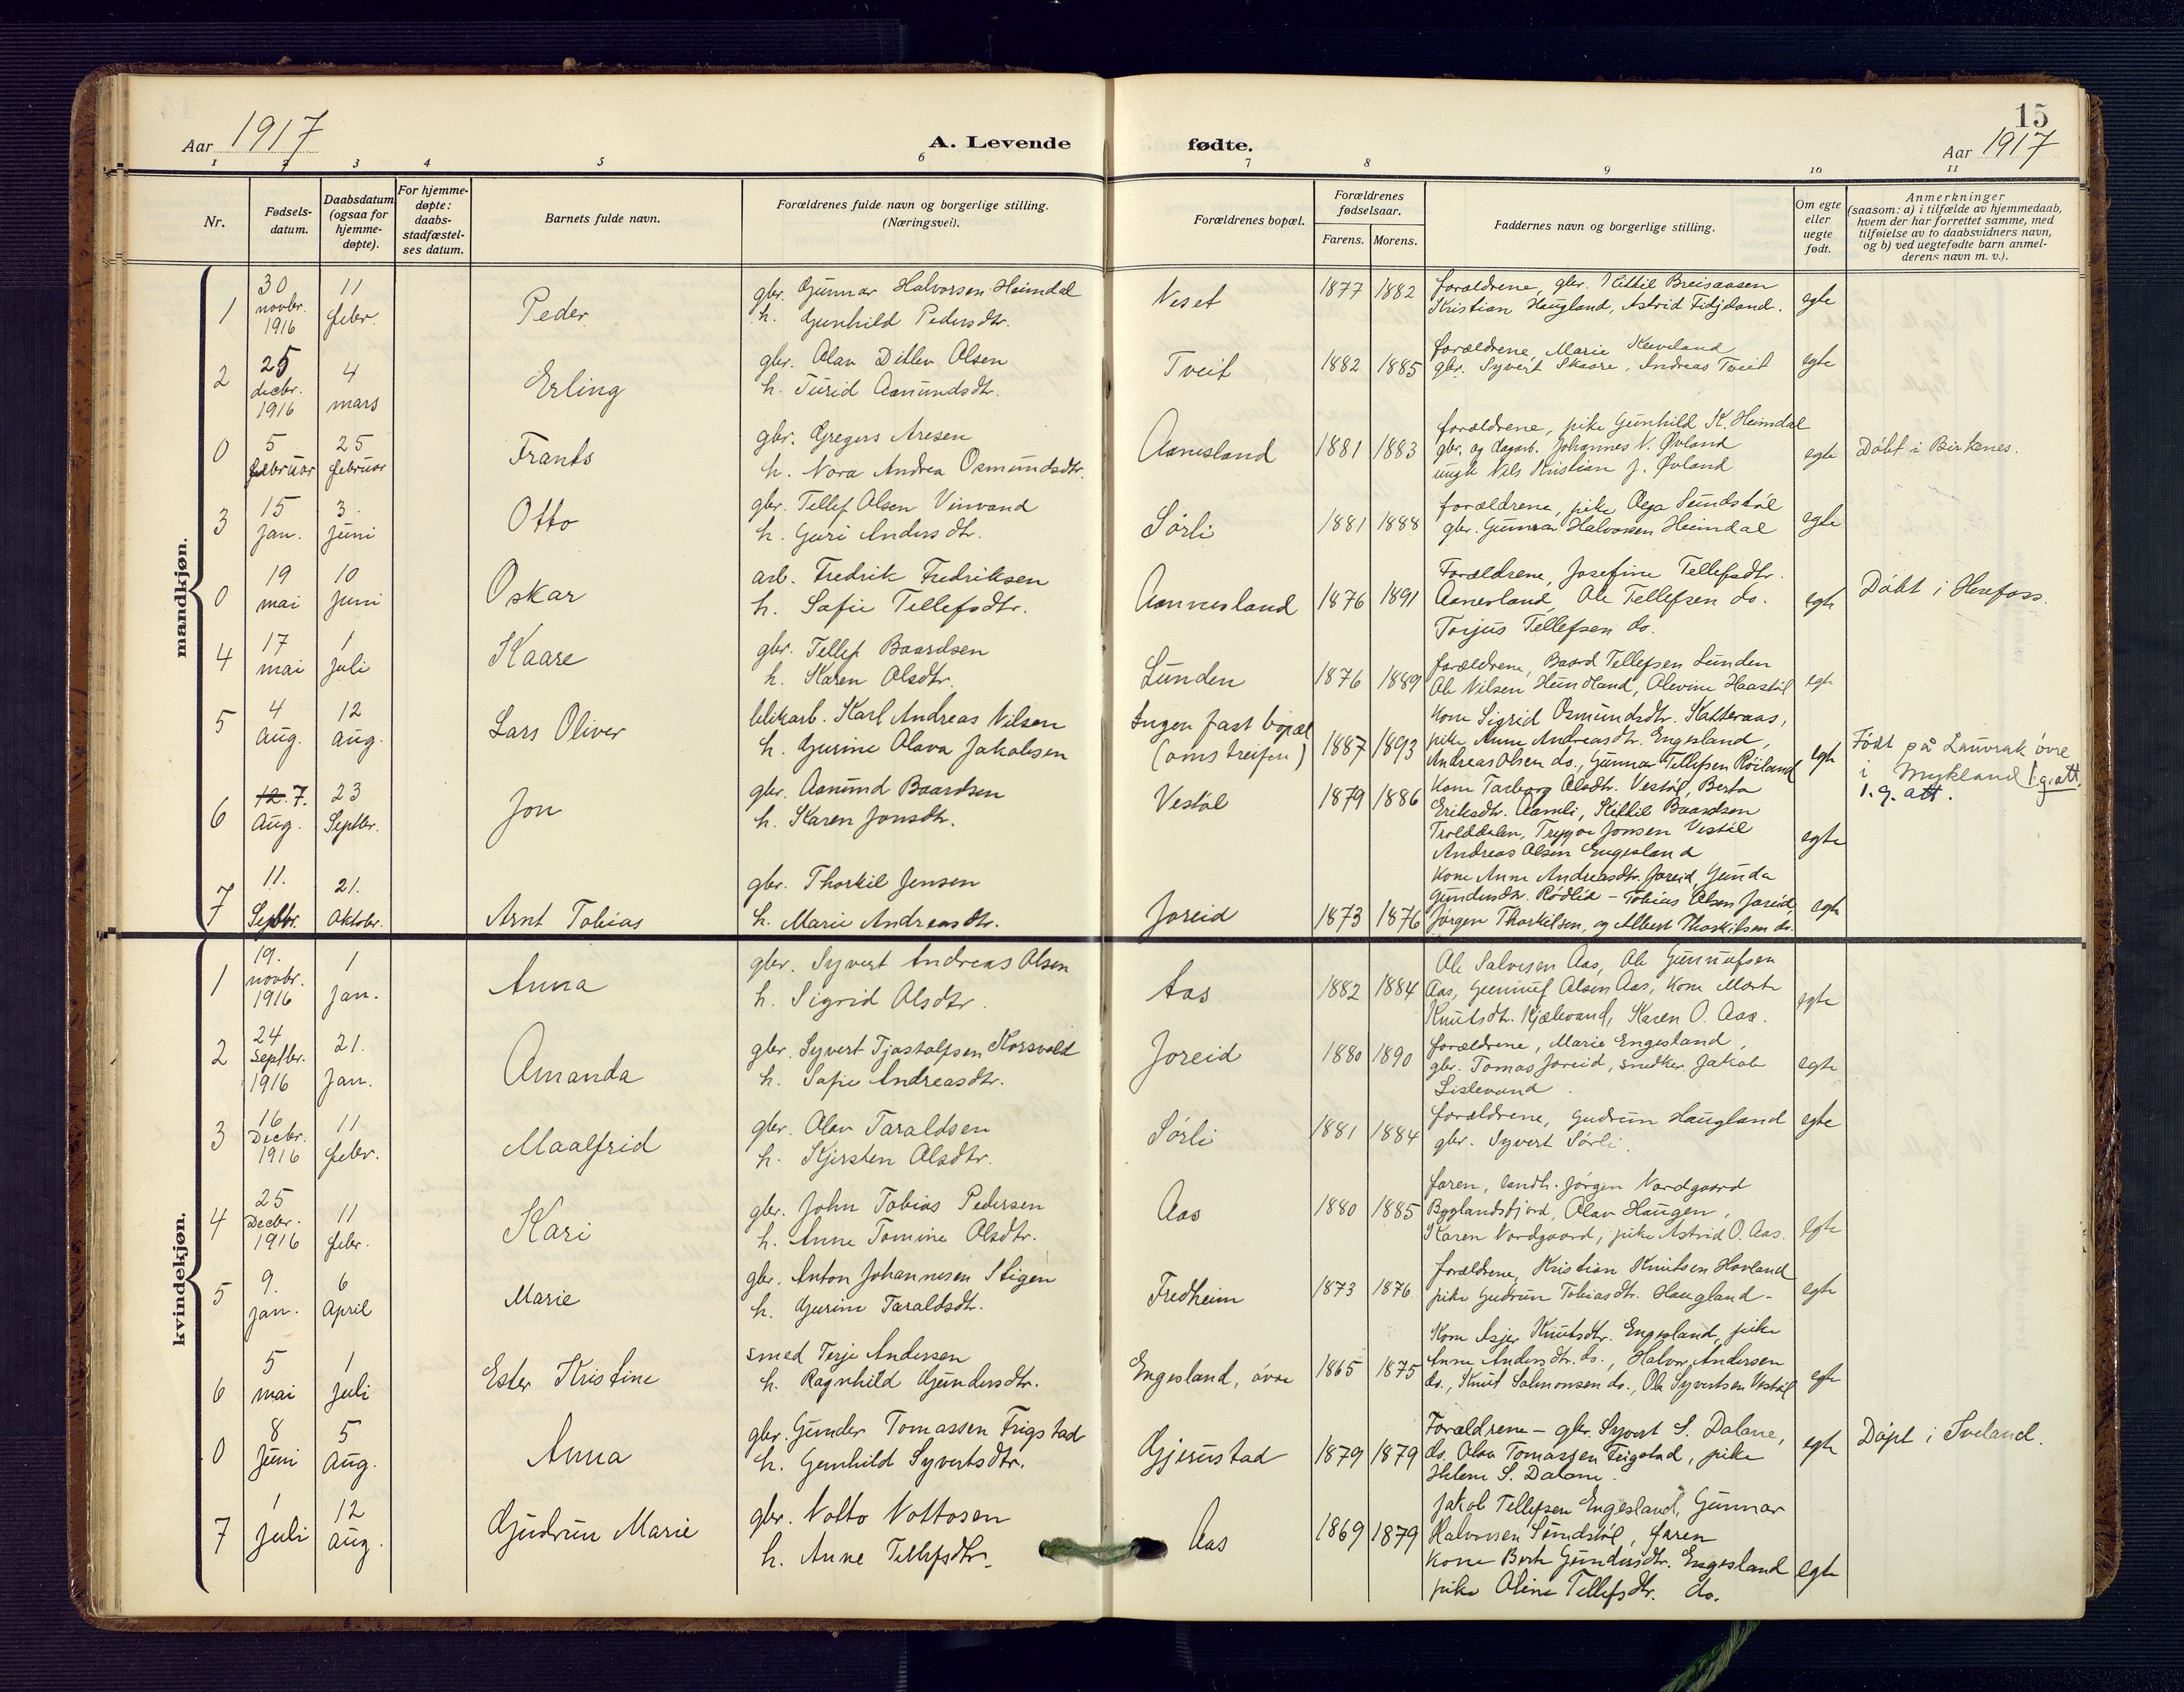 15
Aar 1917
A. Levende fødte.
Aar 1917
1 2 3 4 5 6 7 8 9 10 11
Nr.
Fødsels-
datum.
Daabsdatum
(ogsaa for
hjemme-
døpte).
For hjemme-
døpte:
daabs-
stadfæstel-
ses datum.
Barnets fulde navn.
Forældrenes fulde navn og borgerlige stilling.
(Næringsvei).
Forældrenes bopæl.
Forældrenes
fødselsaar.
Farens. Morens.
Faddernes navn og borgerlige stilling.
Om egte
eller
uegte
født.
Anmerkninger
(saasom: a) i tilfælde av hjemmedaab,
hvem der har forrettet samme, med
tilføielse av to daabsvidners navn,
og b) ved uegtefødte barn anmel-
derens navn m. v.).
mandkjøn.
1
30
novbr.
1916
11
febr.
Peder
gbr. Gunnar Halvorsen Heimdal
h. Gunhild Pedersdtr.
Neset
1877 1882
forældrene, gbr. Kittil Breisaasen
Kristian Haugland, Astrid Fidjeland.
egte
2
25
decbr.
1916
4
mars
Erling
gbr. Olav Ditlev Olsen
h. Turid Aamundsdt.
Tveit
1882 1885
forældrene, Marie Keveland
gbr. Syvert Skaare, Andreas Tveit
egte
0
5
februar
25
februar
Frants
gbr. Gregers Aresen
h. Nora Andrea Osmundsdtr.
Aanesland
1881 1883
forældrene, pike Gunhild K. Heimdal
gbr. og dagarb. Johannes N. Øvland
ungk. Nils Kristian J. Øvland
egte
Döbt i Birkenes.
3
15
jan.
3.
juni
Otto
gbr. Tellef Olsen Vinvand
h. Guri Andersdtr.
Sørli
1881 1888
forældrene, pike Olga Sundstöl
gbr. Gunnar Halvorsen Heimdal
egte
0
19
mai
10
juni
Oskar
arb. Fredrik Fredriksen
h. Sofie Tellefsdtr.
Aannesland
1876 1891
Forældrene, Josefine Tellefsdtr.
Aanesland, Ole Tellefsen do.
Torjus Tellefsen do.
egte
Döbt i Herefoss.
4
17
mai
1
juli
Kaare
gbr. Tellef Baardsen
h. Karen Olsdtr.
Lunden
1876 1889
forældrene, Baard Tellefsen Lunden
Ole Nilsen Hundland, Olevine Haastöl
egte
5
4
Aug.
12
Aug.
Lars Oliver
blikarb. Karl Andreas Nilsen
h. Gurine Olava Jakobsen
Ingen fast bopæl
(omstreifer)
1887 1893
Kone Sigrid Osmundsdtr. Katteraas,
pike Anne Andreasdtr. Engesland,
Andreas Olsen do., Gunnar Tellefsen Röiland
egte
Født på Lauvrak övre
i Mykland I.g.att.
I.g. att.
6
12. 7.
Aug.
23
Septbr.
Jon
gbr. Aanund Baardsen
h. Karen Jonsdtr.
Vestöl
1879 1886
Kone Tarborg Olsdtr. Vestöl, Berta
Eriksdtr. Aamli, Kittil Baardsen
Trolddalen, Trygve Jonsen Vestöl
Andreas Olsen Engesland
egte
7
11.
Septbr.
21.
Oktobr.
Arnt Tobias
gbr. Thorkil Jensen
h. Marie Andreasdtr.
Joreid
1873 1876
Kone Anne Andreasdtr. Joreid, Gunda
Gundersdtr. Rödlid - Tobias Olsen Joreid,
Jørgen Thorkilsen, og Albert Thorkilsen do.
egte
kvindekjøn.
1
19.
novbr.
1916
1
jan.
Anna
gbr. Syvert Andreas Olsen
h. Sigrid Olsdtr.
Aas
1882 1884
Ole Salvesen Aas, Ole Gunnufsen
Aas, Gunnuf Olsen Aas, Kone Marte
Knutsdtr. Kjælevand, Karen O. Aas.
egte
2
24
Septbr.
1916
21.
Jan.
Amanda
gbr. Syvert Tjøstolfsen Korsvold
h. Sofie Andreasdtr.
Joreid
1880 1890
forældrene, Marie Engesland,
gbr. Tomas Joreid, snedker. Jakob
Lislevand.
egte
3
16
Decbr.
1916
11
febr.
Maalfrid
gbr. Olav Taraldsen
h. Kjersten Olsdtr.
Sørli
1881 1884
forældrene, Gudrun Haugland
gbr. Syvert Sørli.
egte
4
25
Decbr.
1916
11
febr.
Kari
gbr. John Tobias Pedersen
h. Anne Tomine Olsdtr.
Aas
1880 1885
faren, landh. Jørgen Nordgaard
Byglandsfjord, Olav Haugen,
Karen Nordgaard, pike Astrid O. Aas.
egte
5
9.
jan.
6
April
Marie
gbr. Anton Johannesen Stigen
h. Gurine Taraldsdt.
Fredheim
1873 1876
forældrene, Kristian Knutsen Hovland
pike Gudrun Tobiasdtr. Haugland-
egte
6
5
mai
1
juli
Ester Kristine
smed Terje Andersen
h. Ragnhild Gundersdtr.
Engesland, övre
1865 1875
Kone Asjer Knutsdtr. Engesland, pike
Anne Andersdtr. do., Halvor Andersen
do., Knut Salmonsen do., Ole Syvertsen Vestöl
egte
0
8
juni
5
Aug.
Anna
gbr. Gunder Tomassen Frigstad
h. Gunhild Syvertsdtr.
Gjerustad
1879 1879
Forældrene - gbr. Syvert S. Dalane,
do. Olav Tomassen Feigstad, pike
Helene S. Dalane.
egte
Döpt i Iveland.
7
1
juli
12
aug.
Gudrun Marie
gbr. Notto Nottosen
h. Anne Tellefsdtr.
Aas
1869 1879
Jakob Tellefsen Engesland, Gunnar
Halvorsen Sundstöl, faren
Kone Berte Gundersdtr. Engesland
pike Oline Tellefsdtr. do.
egte